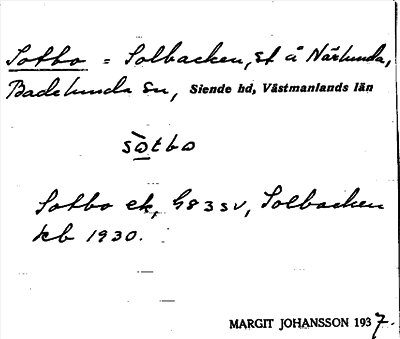 Sotbo = Solbacken, st å Närlunda,
Badelunda sn, Siende hd, Västmanlands län
sòtbo
Sotbo ek, G83sv, Solbacken
kb 1930.
MARGIT JOHANSSON 1937.